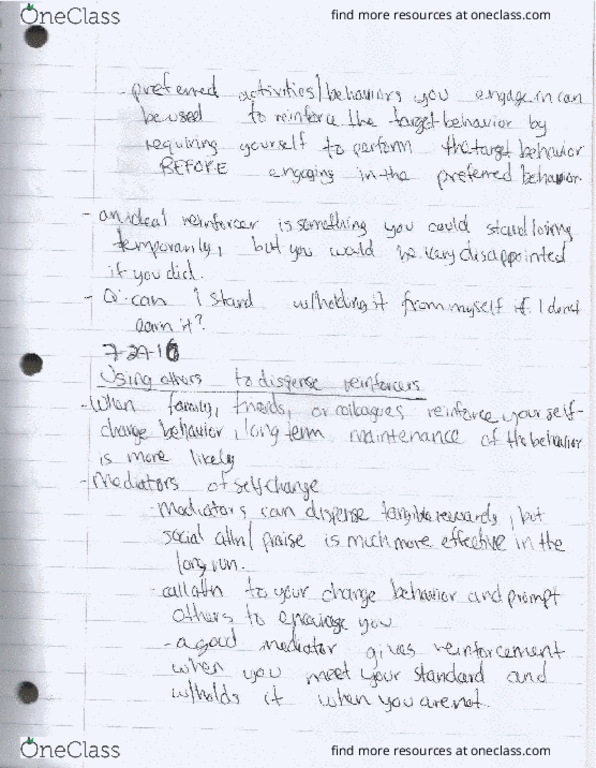 OneClass
find more resources at oneclass.com
- preferred activities/behaviors you engage in can
be used to reinforce the target behavior by
requiring yourself to perform the target behavior
BEFORE engaging in the preferred behavior.
- an ideal reinforcer is something you could stand losing
temporarily, but you would be very disappointed
if you did.
- Q: can I stand w/holding it from myself if I don't
earn it?
7-27-16
Using others to dispense reinforcers
- When family, friends, or colleagues reinforce your self-
change behavior, long term maintenance of the behavior
is more likely
- Mediators of self change
- Mediators can dispense tangible rewards, but
social attn/praise is much more effective in the
long run.
- call attn to your change behavior and prompt
others to encourage you
- a good mediator gives reinforcement
when you meet your standard and
w/holds it when you are not.
OneClass
find more resources at oneclass.com